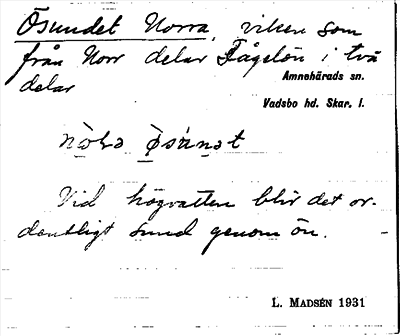 Ösundet Norra, viken som
från Norr delar Fågelön i två
delar
Amnehärads sn.
Vadsbo hd. Skar. l.
Vid högvatten blir det or-
dentligt sund genom ön.
L. MADSÉN 1931